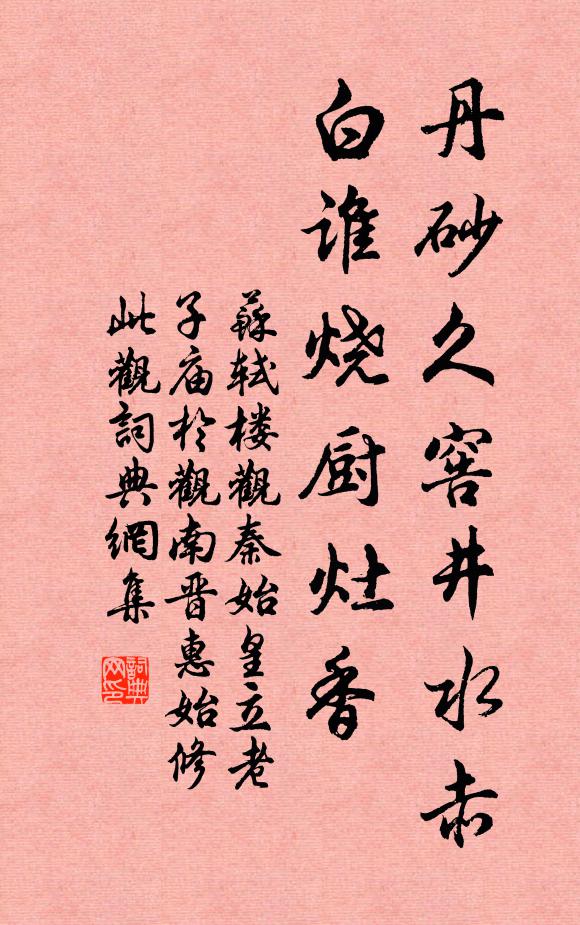 丹砂久窖井水赤
白谁烧厨灶香
蘇轼楼觀秦始皇立老
子庙於觀南晋惠始修
此觀詞典網集
詞典网印